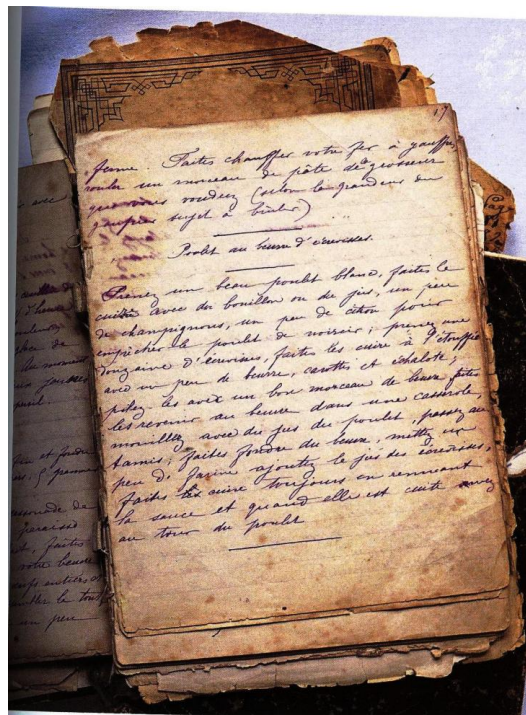 17
ferme. Faites chauffer votre fer à gauffre,
rouler un morceau de pâte de grosseur
que vous voudrez (selon la grandeur du
gauffrier sujet à brûler)
Poulet au beurre d'écrevisses.
Prenez un beau poulet blanc, faites le
cuire avec du bouillon ou du jus, un peu
de champignons, un peu de citron pour
empêcher le poulet de noircir ; prenez une
douzaine d'écrevisses, faites les cuire à l'étouffé
avec un peu de beurre, carottes et échalote,
pilez les avec un bon morceau de beurre faites
les revenir au beurre dans une casserole,
mouillez avec du jus du poulet, passez au
tamis ; faites fondre du beurre, mettez un
peu de farine ajoutez le jus des écrevisses,
faites cuire toujours en remuant
la sauce et quand elle est cuite
au tour du poulet
avec
de
Au moment
fausses
et fondu
de
paraisse
faites
votre beurre
entiers
le tout
un peu